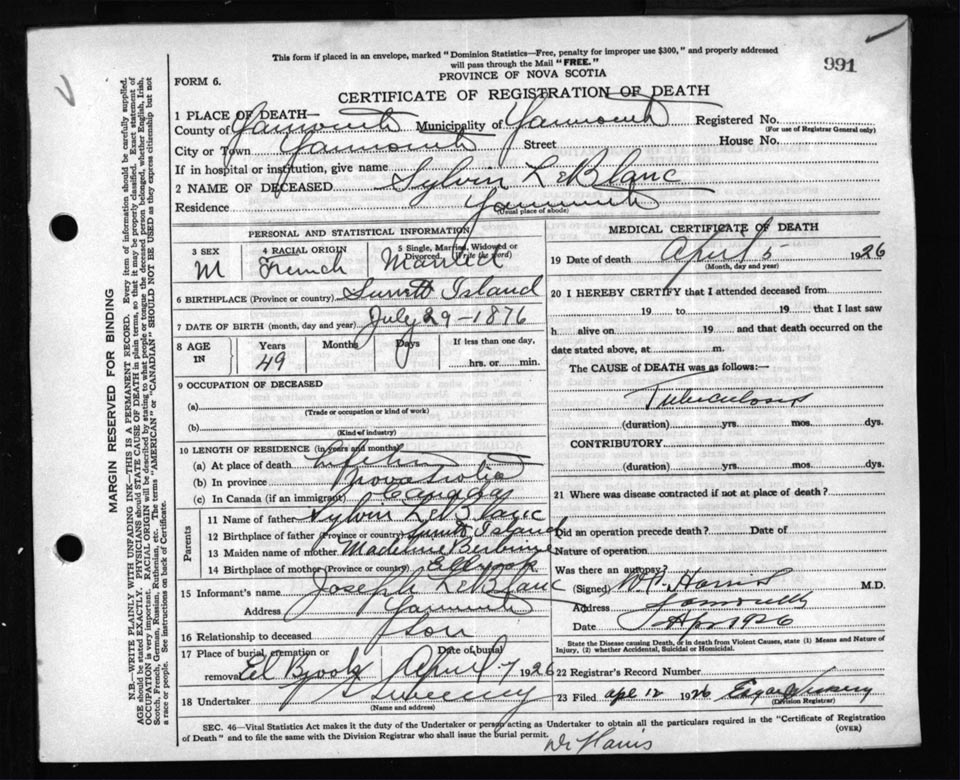 This form if placed in an envelope, marked "Dominion Statistics—Free, penalty for improper use $300," and properly addressed
will pass through the Mail "FREE."
991
PROVINCE OF NOVA SCOTIA
FORM 6.
CERTIFICATE OF REGISTRATION OF DEATH
1 PLACE OF DEATH—
County of Yarmouth Municipality of Yarmouth Registered No.
(For use of Registrar General only)
City or Town Yarmouth Street House No.
If in hospital or institution, give name
2 NAME OF DECEASED Sylvin LeBlanc
Residence Yarmouth
(Usual place of abode)
PERSONAL AND STATISTICAL INFORMATION
3 SEX M
4 RACIAL ORIGIN French
5 Single, Married, Widowed or Divorced (Write the word) Married
6 BIRTHPLACE (Province or country) Surrett Island
7 DATE OF BIRTH (month, day and year) July 29-1876
8 AGE IN Years 49 Months Days If less than one day, hrs. or min.
9 OCCUPATION OF DECEASED
(a)
(Trade or occupation or kind of work)
(b)
(Kind of industry)
10 LENGTH OF RESIDENCE (in years and months)
(a) At place of death
(b) In province Nova Scotia
(c) In Canada (if an immigrant) Canada
Parents
11 Name of father Sylvin LeBlanc
12 Birthplace of father (Province or country) Island
13 Maiden name of mother Madeline
14 Birthplace of mother (Province or country) Eel Brook
15 Informant's name Joseph LeBlanc
Address Yarmouth
16 Relationship to deceased Son
17 Place of burial, cremation or removal Eel Brook Date of burial April 7 1926
18 Undertaker Sweeney
(Name and address)
MEDICAL CERTIFICATE OF DEATH
19 Date of death April 5 1926
(Month, day and year)
20 I HEREBY CERTIFY that I attended deceased from
19 to 19 that I last saw
h alive on 19 and that death occurred on the
date stated above, at m.
The CAUSE of DEATH was as follows:—
Tuberculosis
(duration) yrs. mos. dys.
CONTRIBUTORY
(duration) yrs. mos. dys.
21 Where was disease contracted if not at place of death?
Did an operation precede death? Date of
Nature of operation
Was there an autopsy?
(Signed) Harris M.D.
Address Yarmouth
Date Apr 1926
State the Disease causing Death, or in death from Violent Causes, state (1) Means and Nature of
Injury, (2) whether Accidental, Suicidal or Homicidal.
22 Registrar's Record Number
23 Filed Apr 12 1926 Edgar
(Division Registrar)
SEC. 46—Vital Statistics Act makes it the duty of the Undertaker or person acting as Undertaker to obtain all the particulars required in the "Certificate of Registration
of Death" and to file the same with the Division Registrar who shall issue the burial permit.
(OVER)
Dr Harris
MARGIN RESERVED FOR BINDING
N.B.—WRITE PLAINLY WITH UNFADING INK—THIS IS A PERMANENT RECORD. Every item of information should be carefully supplied.
AGE should be stated EXACTLY. PHYSICIANS should STATE CAUSE OF DEATH in plain terms, so that it may be properly classified. Exact statement of
OCCUPATION is very important. RACIAL ORIGIN will be described by stating to what people or tongue the deceased person belonged, whether English, Irish,
Scotch, French, German, Russian, Ruthenian, etc. The terms "AMERICAN" or "CANADIAN" SHOULD NOT BE USED as they express citizenship but not
a race or people. See instructions on back of Certificate.